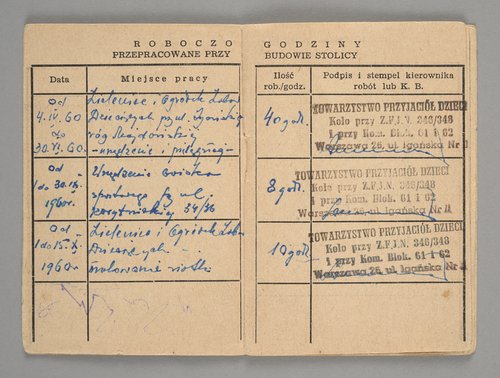 ROBOCZO GODZINY
PRZEPRACOWANE PRZY BUDOWIE STOLICY
Data
Miejsce pracy
Ilość
rob./godz.
Podpis i stempel kierownika
robót lub K. B.
od
4.IV.60
do
30.VI.60
Zieleniec i Ogródek Zabaw
Dziecięcych przy ul. Igańskiej
róg Majdańskiej
- urządzenie i pielęgnacja -
40 godz.
TOWARZYSTWO PRZYJACIÓŁ DZIECI
Koło przy Z.F.J.N. 346/348
i przy Kom. Blok. 61 i 62
Warszawa 26, ul. Igańska Nr
od -
1 do 30.
1960r.
Urządzenie boiska
sportowego
34/36
8 godz.
TOWARZYSTWO PRZYJACIÓŁ DZIECI
Koło przy Z.F.J.N. 346/348
i przy Kom. Blok. 61 i 62
Warszawa 26, ul. Igańska Nr
od -
1 do 15.
1960r.
Zieleniec i Ogródek Zabaw
Dziecięcych -
malowanie
10 godz.
TOWARZYSTWO PRZYJACIÓŁ DZIECI
Koło przy Z.F.J.N. 346/348
i przy Kom. Blok. 61 i 62
Warszawa 26, ul. Igańska Nr